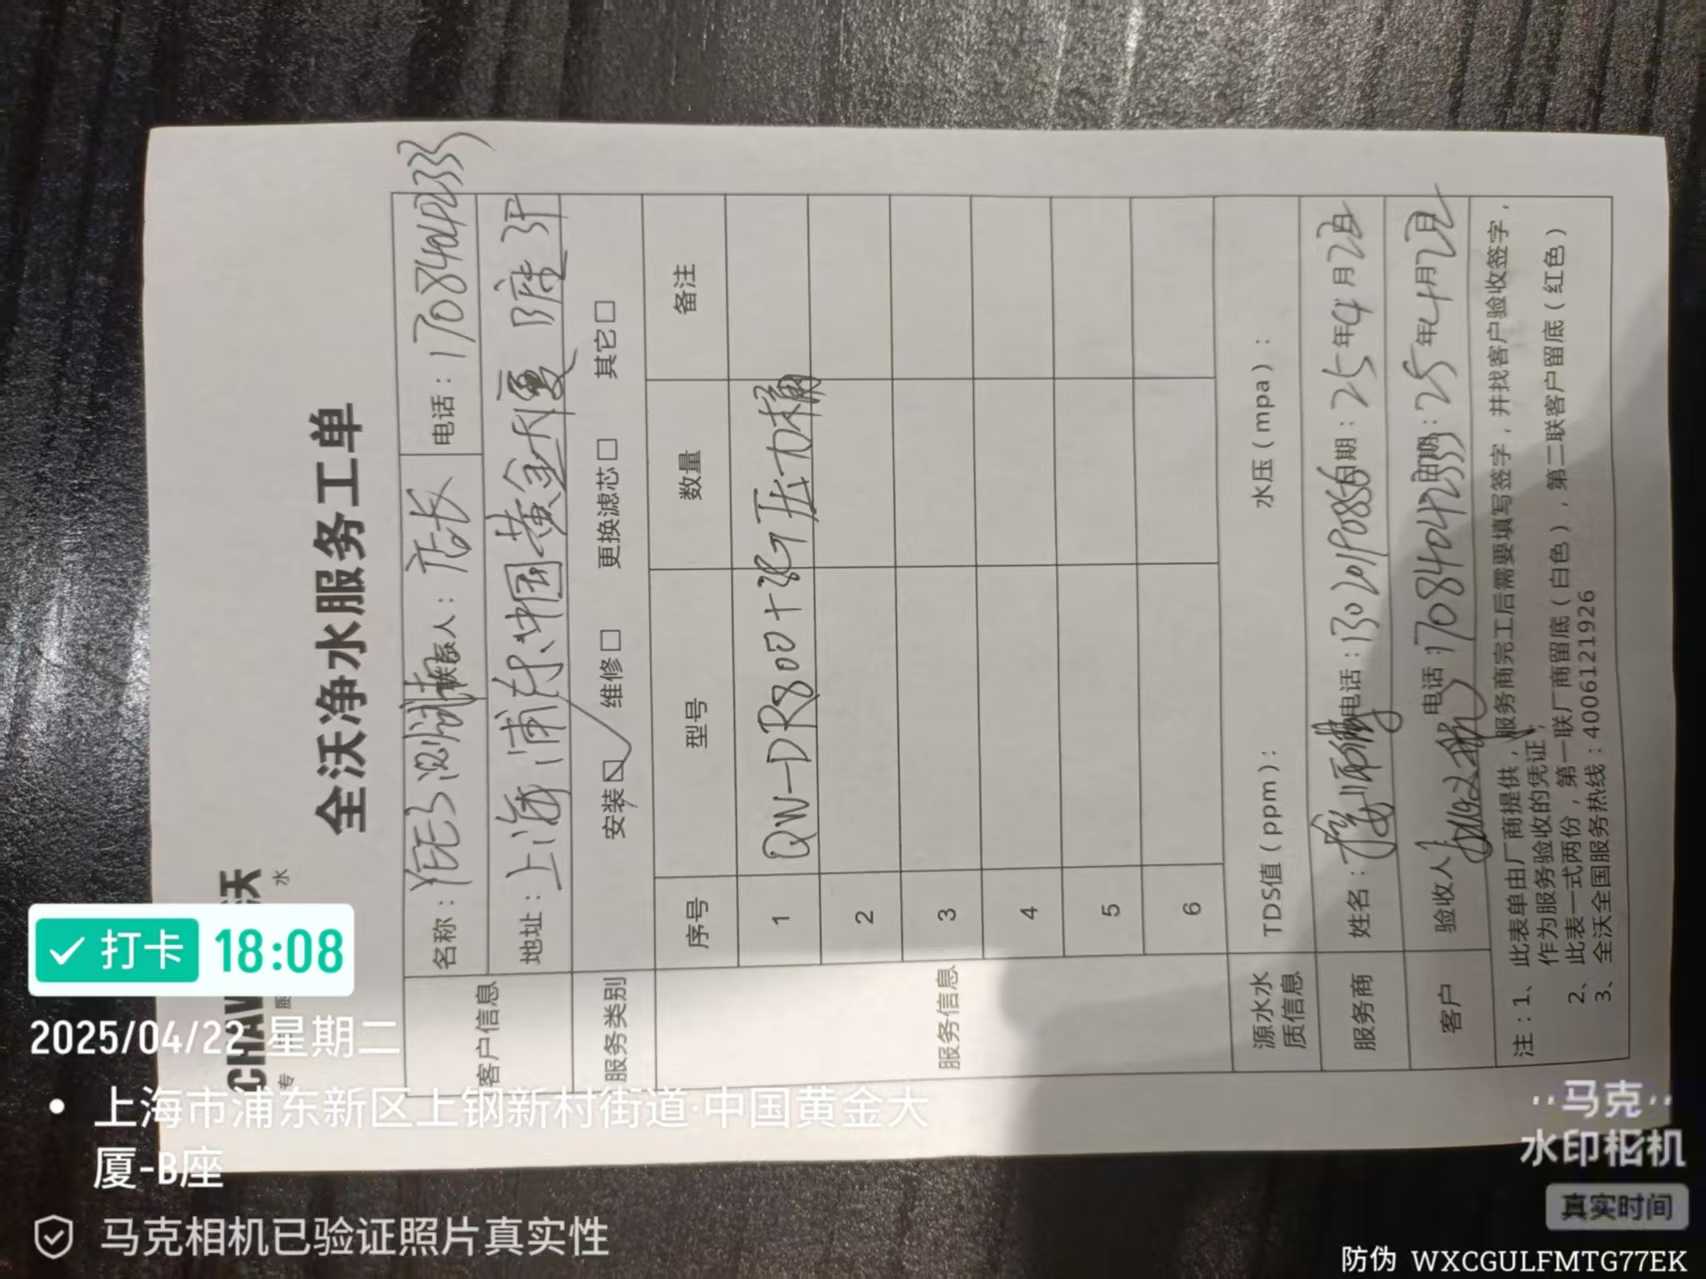 全沃净水服务工单
客户信息 名称： 联系人：店长 电话：17084042333
地址：上海浦东中国黄金大厦B座3F
服务类别 安装☑ 维修□ 更换滤芯□ 其它□
服务信息 序号 型号 数量 备注
1 QW-DR800+3G压力桶
2
3
4
5
6
源水水质信息 TDS值（ppm）： 水压（mpa）：
服务商 姓名： 电话： 日期：25年4月22日
客户 验收人 电话：17084042333 日期：25年4月22日
注：1、此表单由厂商提供，服务商完工后需要填写签字，并找客户验收签字，
作为服务验收的凭证
2、此表一式两份，第一联厂商留底（白色），第二联客户留底（红色）
3、全沃全国服务热线：4006121926
打卡 18:08
2025/04/22 星期二
上海市浦东新区上钢新村街道·中国黄金大
厦-B座
马克相机已验证照片真实性
马克
水印相机
真实时间
防伪 WXCGULFMTG77EK